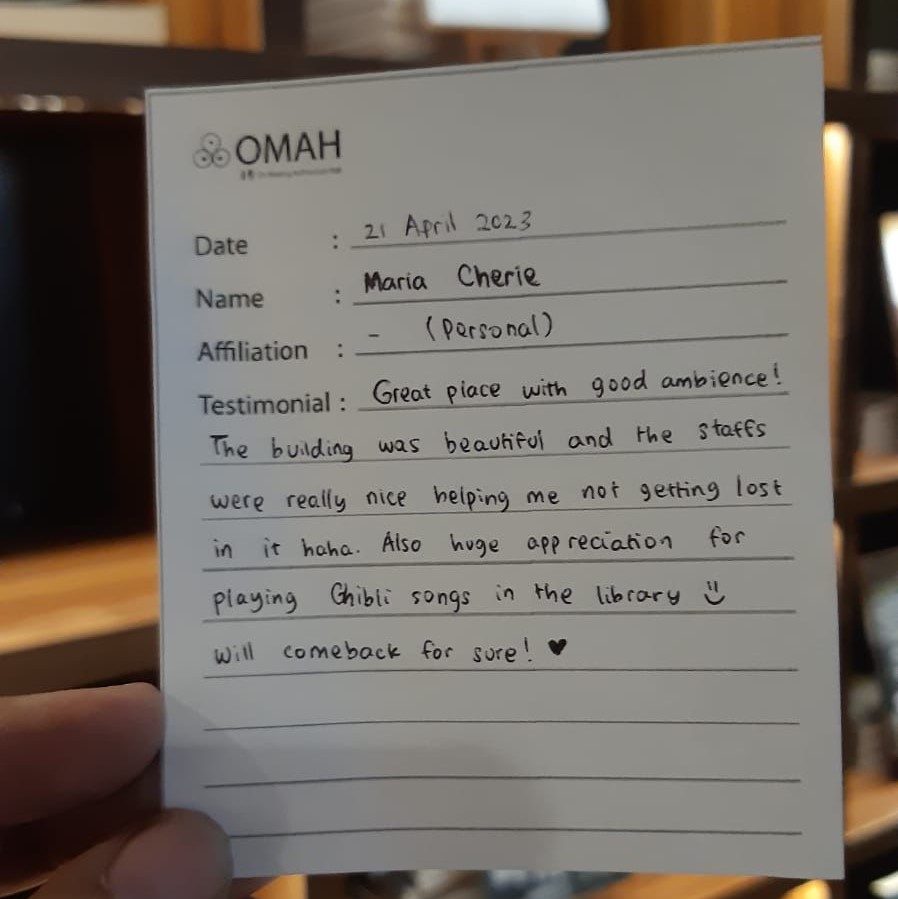 OMAH
Date : 21 April 2023
Name : Maria Cherie
Affiliation : - (Personal)
Testimonial : Great place with good ambience!
The building was beautiful and the staffs
were really nice helping me not getting lost
in it haha. Also huge appreciation for
playing Ghibli songs in the library
Will comeback for sure! ♥